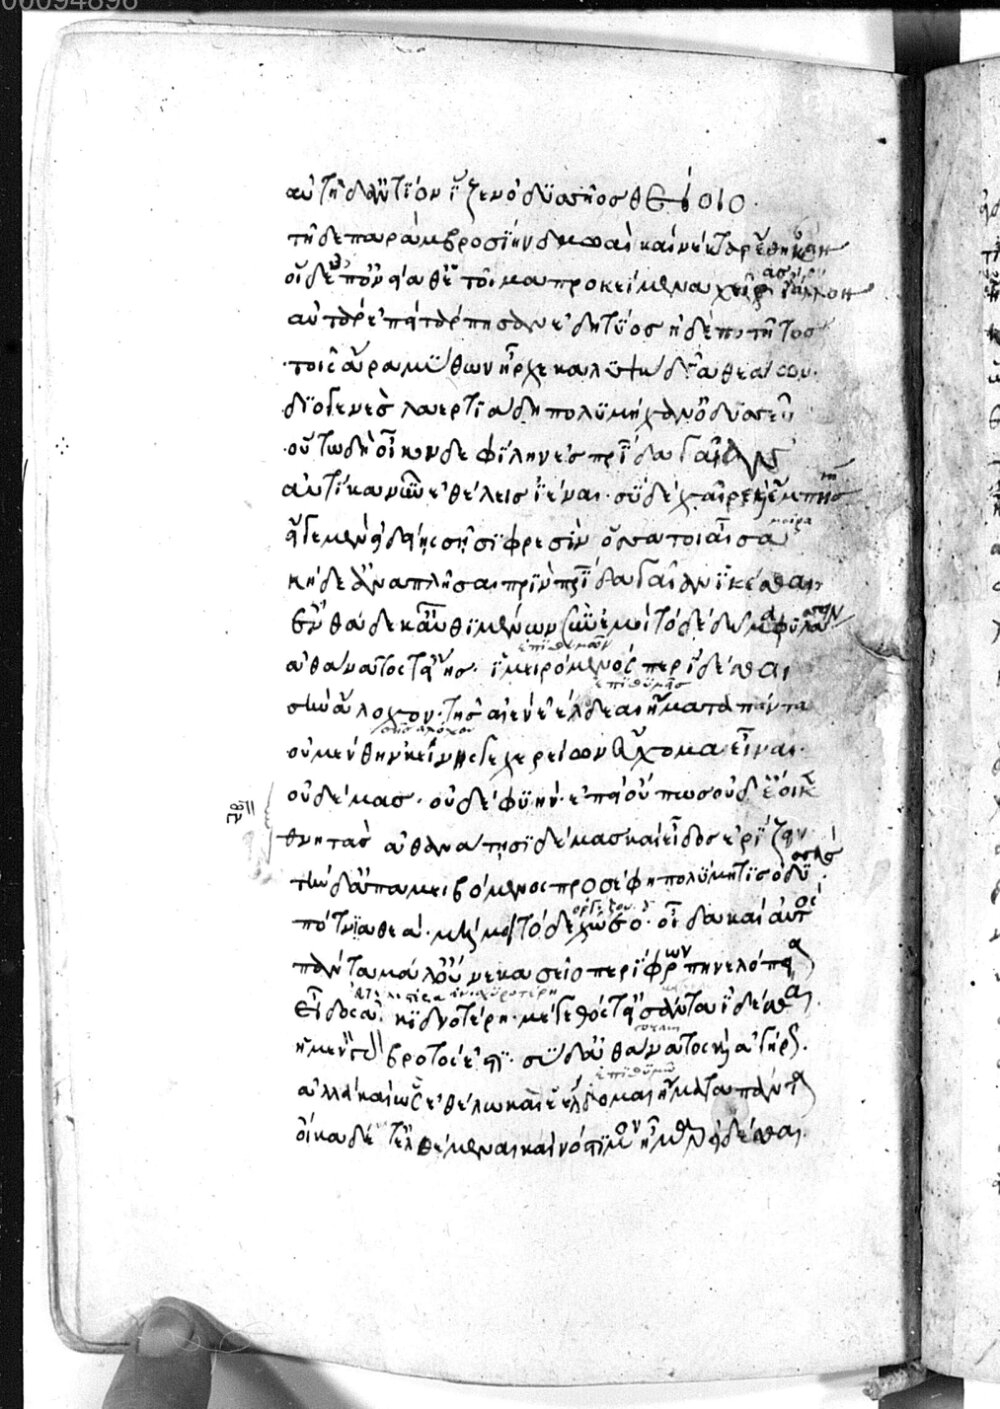 αὐτὴ δ' ἀντίον ἵζεν ὀδυσσῆος θείοιο·
τῆ δε παρ' ἀμβροσίην δμωαὶ καὶ νέκταρ ἔθηκαν
οἵ δ' ἐπ' ὀνείαθ' ἑτοῖμα προκείμενα χεῖρας ἴαλλον
αὐτὰρ ἐπεὶ τάρπησαν ἐδητύος ἠδέ ποτῆτος
τοῖς ἄρα μύθων ἦρχε καλυψὼ δῖα θεάων·
διογενὲς λαερτιάδη πολυμήχαν' ὀδυσσεῦ
οὕτω δὴ οἶκονδε φίλην ἐς πατρίδα γαῖαν
αὐτίκα νῦν ἐθέλεις ἰέναι· σὺ δὲ χαῖρε καὶ ἔμπης
μοῖρα
εἴ γε μὲν εἰδείης σῆσι φρεσὶν ὅσσα τοι αἶσα
κήδε' ἀναπλῆσαι πρὶν πατρίδα γαῖαν ἱκέσθαι
ἐνθάδε κ' αὖθι μένων σὺν ἐμοὶ τόδε δῶμα φυλάσσοις
ἐπιθυμῶν
ἀθάνατος τ' εἴης· ἱμειρόμενός περ ἰδέσθαι
ἐπιθυμεῖς
σὴν ἄλοχον· τῆς αἰὲν ἐέλδεαι ἤματα πάντα
οὐ μέν θην κείνης γε χερείων εὔχομαι εἶναι·
οὐ δέμας· οὐδέ φυήν· ἐπεὶ οὔ πως οὐδὲ ἔοικε
θνητὰς ἀθανάτησι δέμας καὶ εἶδος ἐρίζειν
τὴν δ' ἀπαμειβόμενος προσέφη πολύμητις ὀδυσσεύς·
ὀργίζου
πότνια θεά· μή μοι τόδε χώεο· οἶδα καὶ αὐτός
πάντα μάλ' οὕνεκα σεῖο περίφρων πηνελόπεια
εἶδος ἀκιδνοτέρη· μέγεθός τ' εἰσάντα ἰδέσθαι·
ἡ μὲν γὰρ βροτός ἐστι· σὺ δ' ἀθάνατος καὶ ἀγήρως·
ἐπιθυμῶ
ἀλλὰ καὶ ὧς ἐθέλω καὶ ἐέλδομαι ἤματα πάντα
οἴκαδέ τ' ἐλθέμεναι καὶ νόστιμον ἦμαρ ἰδέσθαι·